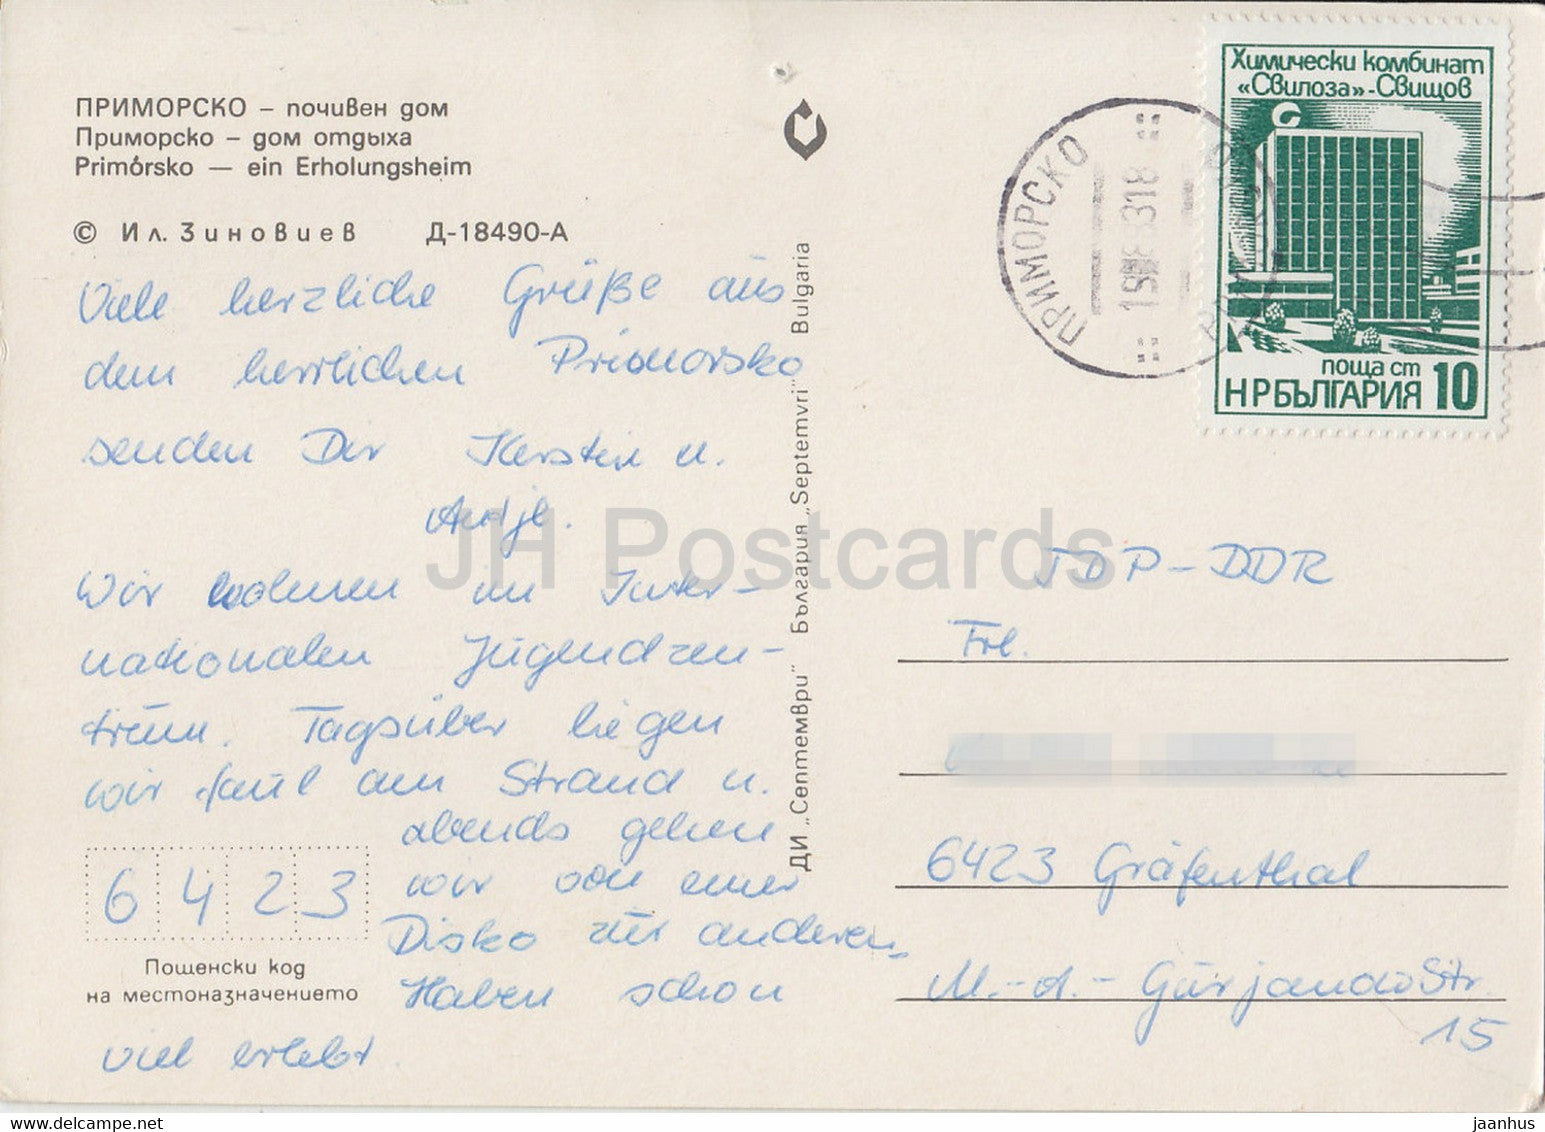 ПРИМОРСКО – почивен дом
Приморско – дом отдыха
Primórsko — ein Erholungsheim
© Ил. Зиновиев Д-18490-А
Viele herzliche Grüße aus
dem herrlichen Primorsko
senden Dir Kerstin u.
Antje.
Wir wohnen im Inter-
nationalen Jugendzen-
trum. Tagsüber liegen
wir faul am Strand u.
abends gehen
wir von einer
Disko zur anderen.
Haben schon
viel erlebt.
6 4 2 3
Пощенски код
на местоназначението
ДИ „Септември" България „Septemvri" Bulgaria
ПРИМОРСКО
Химически комбинат
«Свилоза»-Свищов
поща ст
НР БЪЛГАРИЯ 10
JH Postcards
DDR
Frl.
6423 Gräfenthal
M.-d.- Str.
15
jaanhus